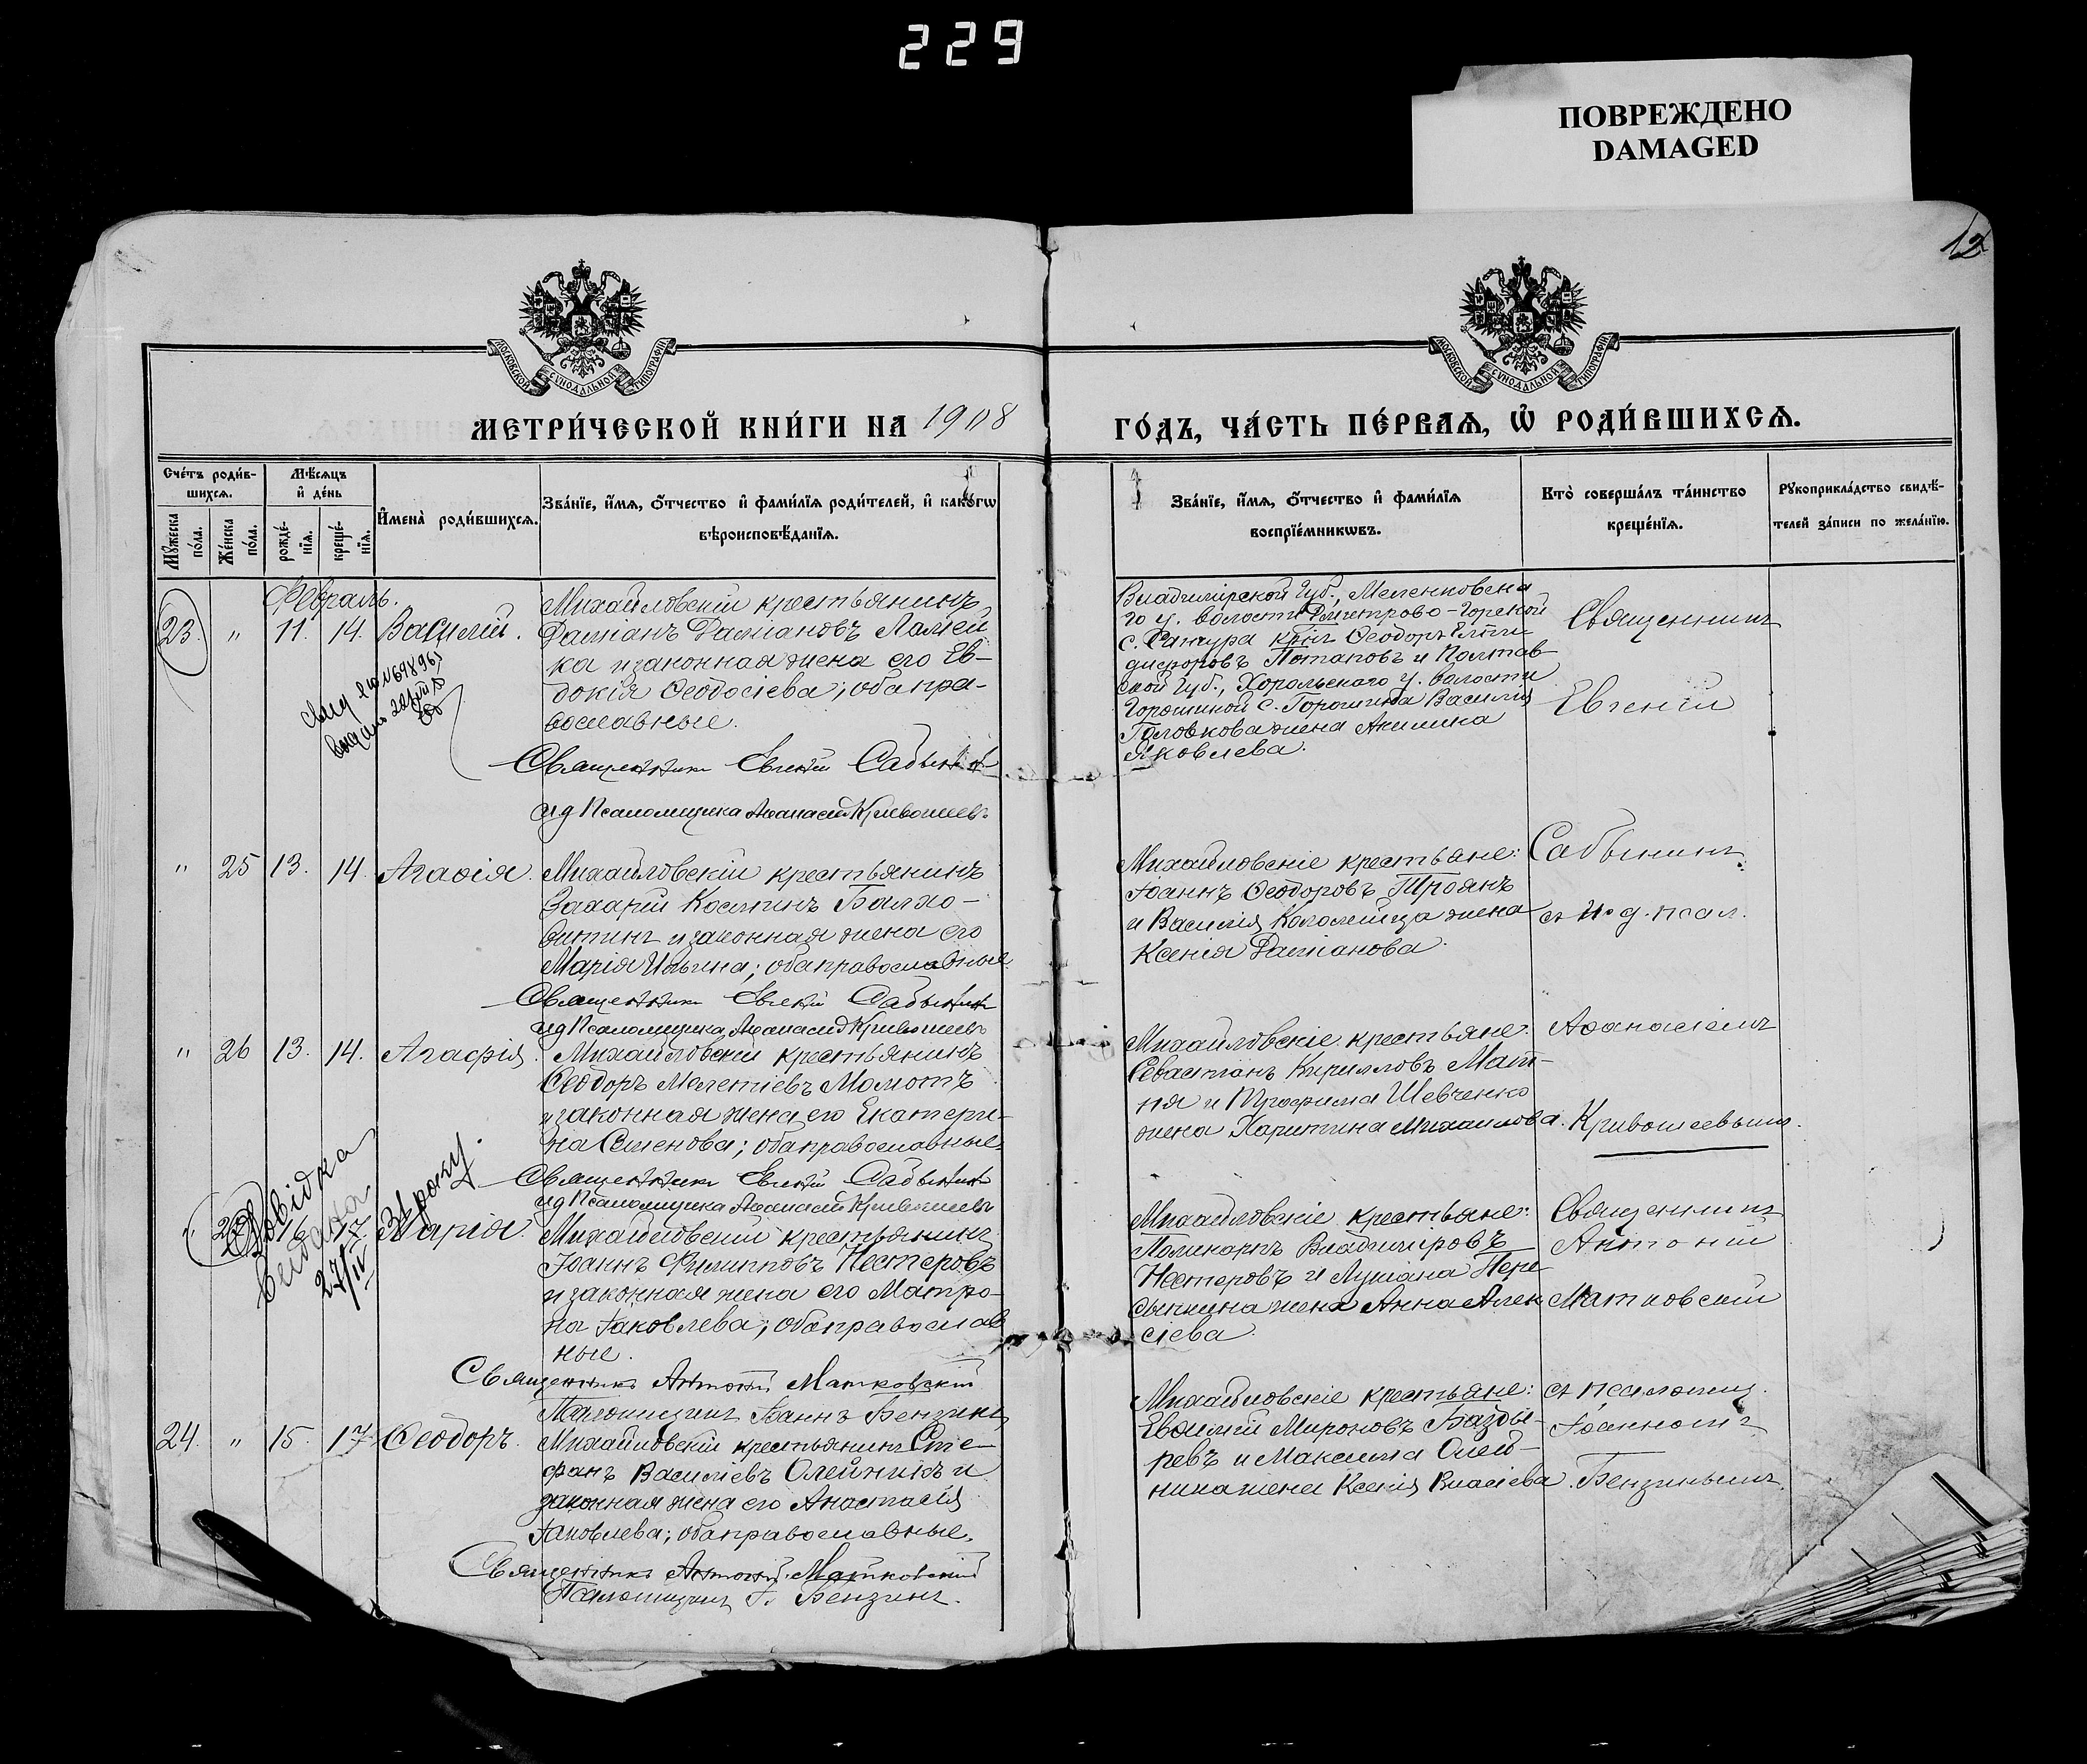 229
ПОВРЕЖДЕНО
DAMAGED
12
МОСКОВСКОЙ СѴНОДАЛЬНОЙ ТИПОГРАФІИ
МОСКОВСКОЙ СѴНОДАЛЬНОЙ ТИПОГРАФІИ
МЕТРИ́ЧЕСКОЙ КНИ́ГИ НА 1908
ГО́ДЪ, ЧА́СТЬ ПЕ́РВАѦ, Ѡ҆ РОДИ́ВШИХСѦ.
Сче́тъ роди́в-
шихсѧ.
Мꙋ́жеска по́ла.
Же́нска по́ла.
Мѣ́сѧцъ
и҆ де́нь
рожде́-
нїѧ.
креще́-
нїѧ.
И҆мена̀ роди́вшихсѧ.
Зва́нїе, и҆́мѧ, ѻ҆́тчество и҆ фами́лїѧ роди́телей, и҆ како́гѡ
вѣроисповѣ́данїѧ.
Зва́нїе, и҆́мѧ, ѻ҆́тчество и҆ фами́лїѧ
воспрїе́мникѡвъ.
Кто̀ соверша́лъ та́инство
креще́нїѧ.
Рꙋкоприкла́дство свидѣ́-
телей за́писи по жела́нїю.
Февраль.
23. " 11. 14. Василій.
Михайловскій крестьянинъ
Даміанъ Даміановъ Ломей
ка и законная жена его Ев-
докія Ѳеодосіева; оба пра-
вославные.
Священникъ Евгеній Сабынин
ид Псаломщика Аѳанасій Кривошеевъ
Владимірской Губ., Меленковска
го у. волости Дмитрово-Горской
с. кр-нъ Ѳеодоръ
Потаповъ и Полтав-
ской Губ., Хорольскаго у. волости
Горошиной с. Горошина Василія
Головкова жена Акилина
Яковлева.
Священникъ
Евгеній
" 25 13. 14. Агаѳія.
Михайловскій крестьянинъ
Захарій Косминъ
и законная жена его
Марія Ильина; оба православные
Священникъ Евгеній Сабынин
ид Псаломщика Аѳанасій Кривошеевъ
Михайловскіе крестьяне:
Іоаннъ Ѳеодоровъ Троянъ
и Василія Коломійца жена
Ксенія Даміанова.
Сабынинъ
съ и. д. псал.
" 26 13. 14. Агафія.
Михайловскій крестьянинъ
Ѳеодоръ Мелетіевъ Момотъ
и законная жена его Екатери-
на Семенова; оба православные
Священникъ Евгеній Сабынин
ид Псаломщика Аѳанасій Кривошеевъ
Михайловскіе крестьяне:
Севастіанъ Кирилловъ
и Трофима Шевченко
жена Харитина Михайлова.
Аѳанасіемъ
Кривошеевымъ.
Довідка
видана
27/IV
Зраку.
" 16 17. Марія.
Михайловскій крестьянинъ
Іоаннъ Филипповъ Нестеровъ
и законная жена его Матро-
на Іаковлева; оба православ
ные.
Священникъ Антоній Матковскій
Псаломщикъ Іоаннъ Бензинъ
Михайловскіе крестьяне:
Поликарпъ Владиміровъ
Нестеровъ и Лукіана Пере
сыпкина жена Анна Алек
сіева.
Священникъ
Антоній
Матковскій
24. " 15. 17. Ѳеодоръ.
Михайловскій крестьянинъ Сте-
фанъ Василіевъ Олейникъ и
законная жена его Анастасія
Іаковлева; оба православные.
Священникъ Антоній Матковскій
Псаломщикъ І. Бензинъ.
Михайловскіе крестьяне:
Евѳимій Мироновъ Базды-
ревъ и Максима Олей-
ника жена Ксенія Власіева.
съ псаломщ.
Іоанномъ
Бензинымъ.